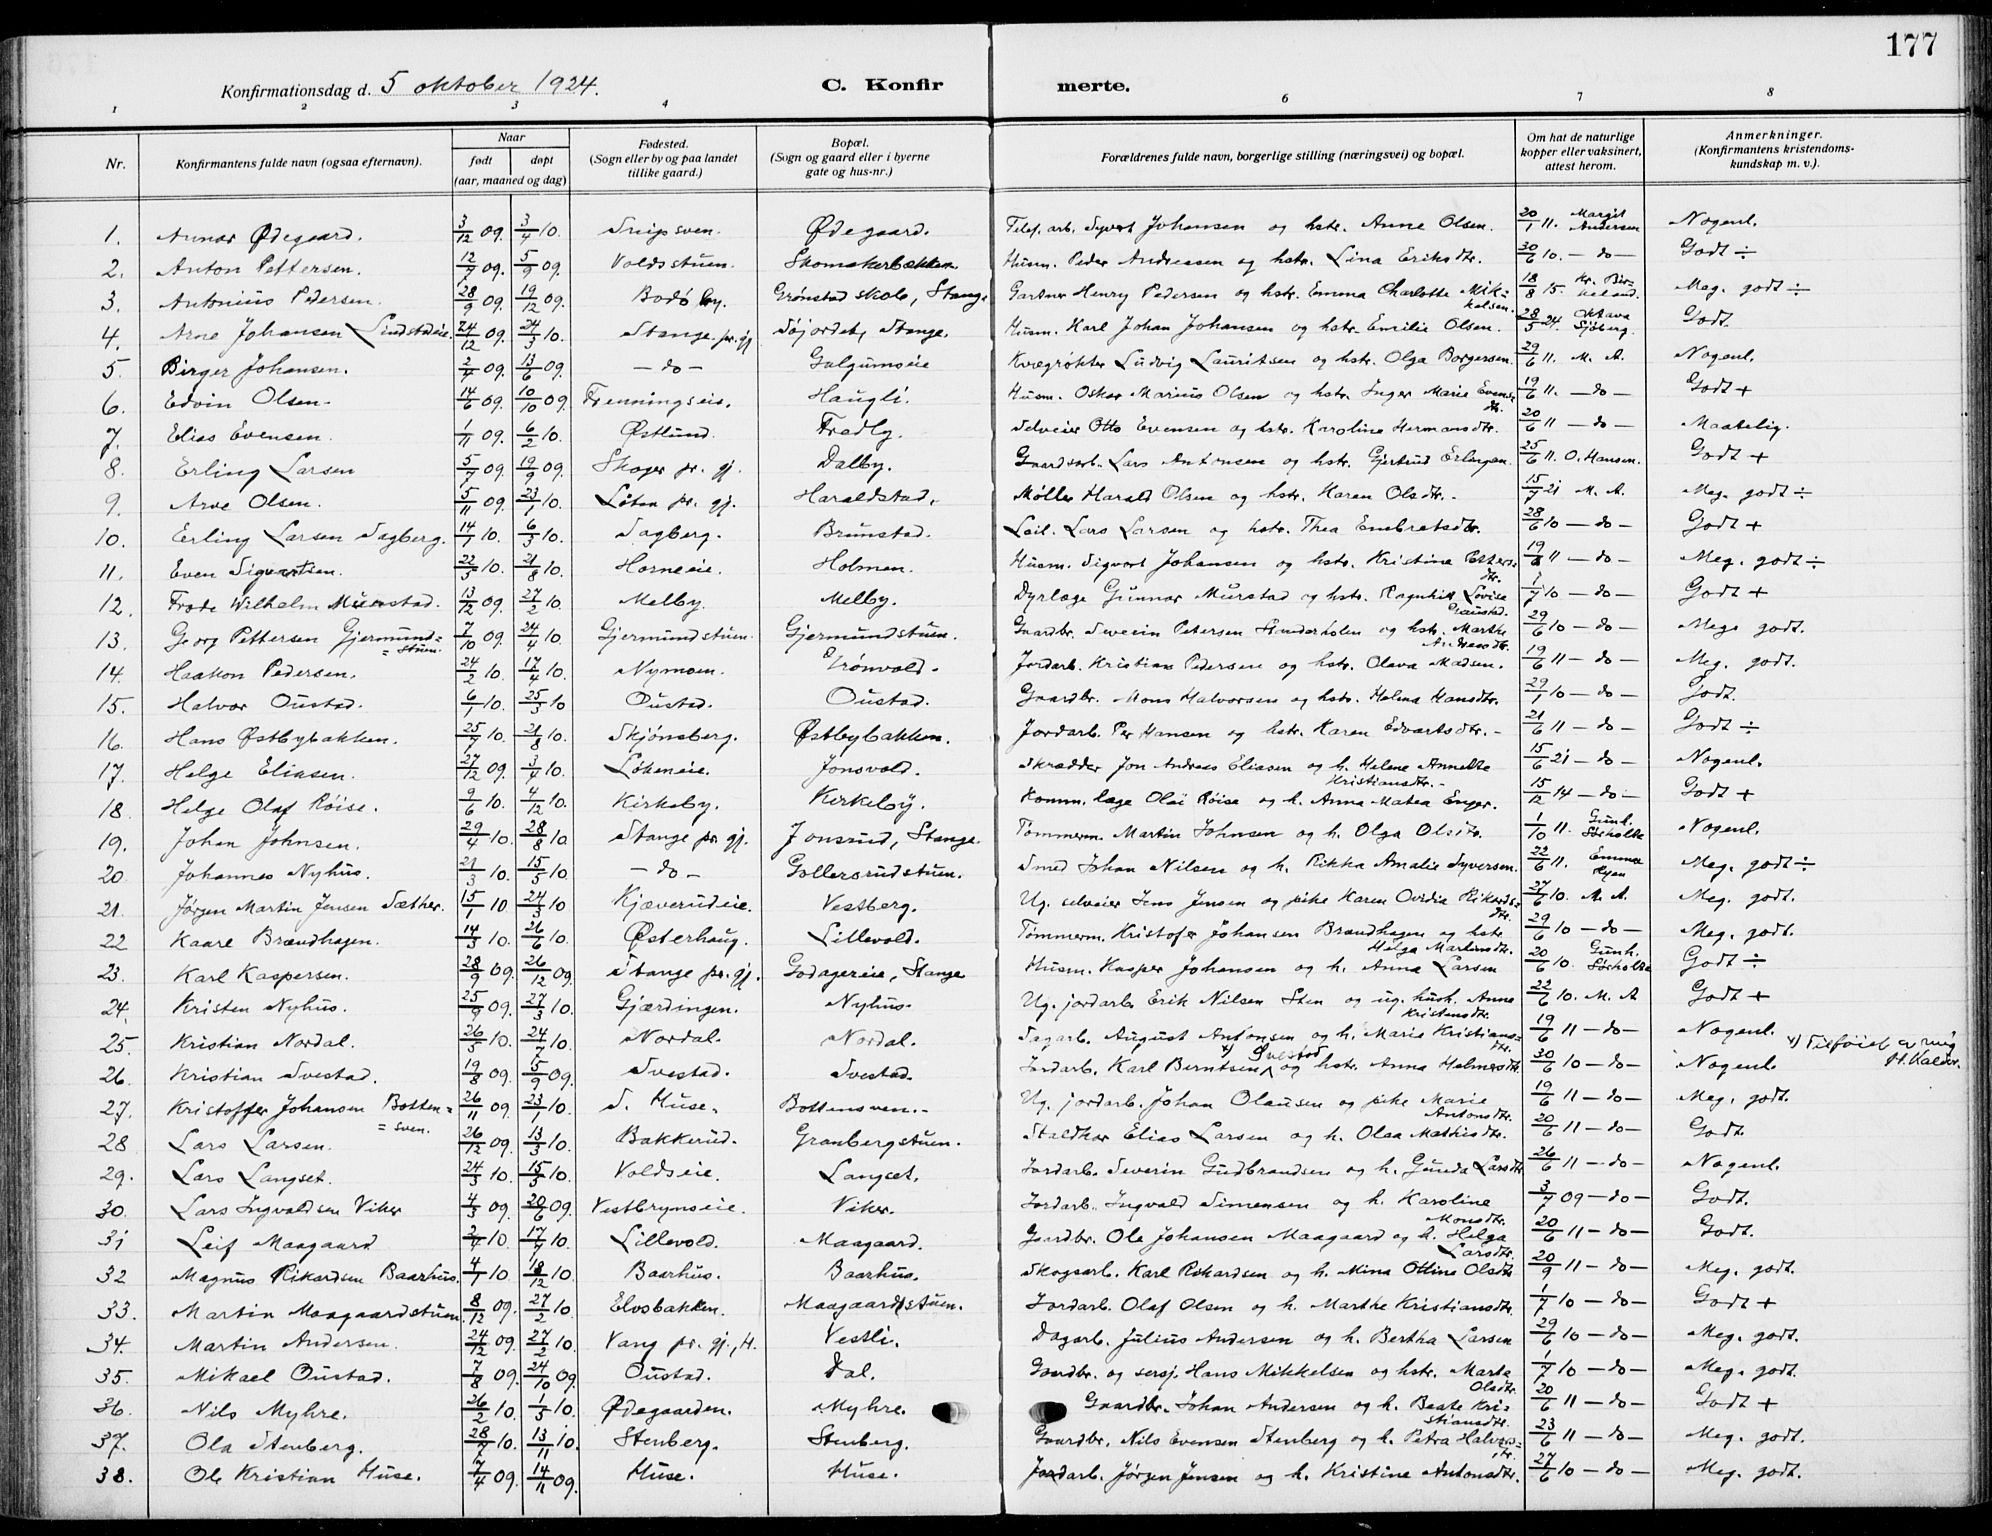 177
Konfirmationsdag d. 5 oktober 1924. C. Konfir merte.
1 2 3 4 6 7 8
Nr. Konfirmantens fulde navn (ogsaa efternavn). Naar født døpt (aar, maaned og dag) Fødested. (Sogn eller by og paa landet tillike gaard.) Bopæl. (Sogn og gaard eller i byerne gate og hus-nr.) Forældrenes fulde navn, borgerlige stilling (næringsvei) og bopæl. Om hat de naturlige kopper eller vaksinert, attest herom. Anmerkninger. (Konfirmantens kristendomskundskap m. v.).
1. Annar Ødegaard. 3/12 09. 3/4 10. Snipsven. Ødegaard. Telef. arb. Syvert Johansen og hstr. Anne Olsen. 20/1 11. Margit Andersen Nogenl.
2. Anton Pettersen. 12/7 09. 5/9 09. Voldsstuen. Skomakerbakken. Husm. Peder Andreassen og hstr. Lina Eriksdtr. 30/6 10. - do - Godt ÷
3. Antonius Pedersen. 28/9 09. 19/12 09. Bodø by. Grønstad skole, Stange Gartner Henry Pedersen og hstr. Emma Charlotte Mikkelsen. 18/8 15. Kr. Birkeland. Meg. godt ÷
4. Arne Johansen Lindstadeie. 24/12 09. 24/3 10. Stange pr. gj. Søjordet, Stange. Husm. Karl Johan Johansen og hstr. Emilie Olsen. 28/5 24. Oktava Sjøberg. Godt.
5. Birger Johansen. 2/4 09. 13/6 09. - do - Galgumseie Kvægrøkter Ludvig Lauritsen og hstr. Olga Borgersen. 29/6 11. M. A. Nogenl.
6. Edvin Olsen. 14/6 09. 10/10 09. Frenningseie. Haugli. Husm. Oskar Marius Olsen og hstr. Inger Marie Evensdtr. 19/6 11. - do - Godt +
7. Elias Evensen. 1/11 09. 6/2 10. Østlund. Fredly. Selveier Otto Evensen og hstr. Karoline Hermansdtr. 20/6 11 - do - Maatelig.
8. Erling Larsen 5/7 09. 19/9 09. Skoger pr. gj. Dalby. Gaardsarb. Lars Antonsen og hstr. Gjertrud Erlingsen. 25/6 11. O. Hansen. Godt +
9. Arve Olsen. 5/11 09. 23/1 10. Løten pr. gj. Haraldstad. Møller Harald Olsen og hstr. Karen Olsdtr. - 15/7 21 M. A. Meg. godt ÷
10. Erling Larsen Sagberg. 14/1 10. 6/3 10. Sagberg. Brunstad. Leil. Lars Larsen og hstr. Thea Embretsdtr. 28/6 10 - do - Godt +
11. Even Sigvartsen. 22/5 10. 21/8 10. Horneeie. Holmen. Husm. Sigvart Johansen og hstr. Kristine Pettersdtr. 19/6 11 - do - Meg. godt ÷
12. Frode Wilhelm Murstad. 13/12 09. 27/2 10. Melby. Melby. Dyrlæge Gunnar Murstad og hstr. Ragnhild Lovise Graustad. 1/7 10 - do - Godt +
13. Georg Pettersen Gjermund= =stuen. 7/10 09. 24/4 10. Gjermundstuen. Gjermundstuen. Gaardbr. Severin Petersen Senderholen og hstr. Marthe Andreasdtr. 29/6 10 - do - Mege godt.
14. Haakon Pedersen. 24/2 10. 17/4 10. Nymoen. Grønvold. Jordarb. Kristian Pedersen og hstr. Olava Madsen. 19/6 11 - do - Meg. godt.
15. Halvor Oustad. 6/1 10. 25/3 10 Oustad. Oustad. Gaardbr. Mons Halvorsen og hstr. Helma Hansdtr. 29/1 10 - do - Godt.
16. Hans Østbybakken. 25/7 10. 21/8 10. Skjønsberg. Østbybakken. Jordarb. Per Hansen og hstr. Karen Edvartsdtr. - 21/6 11 - do - Godt ÷
17. Helge Eliasen. 27/12 09. 3/4 10. Løkeneie. Jonsvold. Skrædder Jon Andreas Eliasen og h. Helene Annette Kristiansdtr. - 15/6 21 - do - Nogenl.
18. Helge Olaf Røise. 9/6 10. 4/12 10. Kirkeby. Kirkeby. Komm. læge Olai Røise og h. Anna Matea Enger. 15/12 14 - do - Godt +
19. Johan Johnsen. 29/4 10. 28/8 10. Stange pr. gj. Jonsrud, Stange. Tømmerm. Martin Johnsen og h. Olga Olsdtr. 1/10 11. Gunh. Sørholte Nogenl.
20. Johannes Nyhus. 21/3 10. 15/5 10 - do - Gollersrudstuen. Smed Johan Nilsen og h. Rikka Amalie Syversen. 22/6 11. Emma Hyen Meg. godt ÷
21. Jørgen Martin Jensen Sæther. 15/1 10. 24/3 10 Kjæverudeie. Vestberg. Ug. selveier Jens Jensen og pike Karen Ovidia Rikardsdtr. 27/6 10. M. A. Meg. godt.
22 Kaare Brændhagen. 14/3 10. 26/6 10. Østerhaug. Lillevold. Tømmerm. Kristofer Johansen Brændhagen og hstr. Helga Martinsdtr. 29/6 10 - do - Meg. godt.
23. Karl Kaspersen. 28/9 09. 26/12 09. Stange pr. gj. Godagereie, Stange Husm. Kasper Johansen og h. Anna Larsen 20/6 10. Gunh. Sørholte Godt ÷
24. Kristen Nyhus. 25/9 09. 27/3 10. Gjærdingen. Nyhus. Ug. jordarb. Erik Nilsen Sten og ug. hush. Anne Kristensdtr. 22/6 10. M. A Godt +
25. Kristian Nordal. 26/5 10. 24/7 10. Nordal. Nordal. Dagarb. August Antonsen og h. Marie Kristiansdtr. 19/6 11 - do - Nogenl.
26. Kristian Svestad. 19/8 09. 5/9 09. Svestad. Svestad. Jordarb. Karl Berntsen x) Svestad og hstr. Anna Helmersdtr 30/6 10 - do - Nogenl. x) Tilføiet av mig H. Kalder.
27. Kristoffer Johansen Botten= =sven. 26/11 09. 23/1 10. S. Huse. Bottensven. - Ug. jordarb. Johan Olausen og pike Marie Antonsdtr. 19/6 11 - do - Meg. godt.
28 Lars Larsen. 26/12 09. 13/3 10. Bakkerud. Granbergstuen. Staldkar Elias Larsen og h. Olea Mathisdtr. 20/6 11 - do - Godt
29. Lars Langset. 24/3 10. 15/5 10. Voldseie. Langset. Jordarb. Severin Gudbrandsen og h. Gunda Larsdtr 26/6 11 - do - Nogenl.
30. Lars Ingvaldsen Viker 4/3 09. 20/6 09. Vestbrynseie. Viker. Jordarb. Ingvald Simensen og h. Karoline Monsdtr. 3/7 09 - do - Godt.
31 Leif Maagaard 2/4 10. 17/7 10. Lillevold. Maagaard. Gaardbr. Ole Johansen Maagaard og h. Helga Larsdtr. 20/6 11 - do - Godt.
32 Magnus Rikardsen Baarhus. 4/7 10. 18/12 10. Baarhus. Baarhus. Skogsarb. Karl Rikardsen og h. Mina Otline Olsdtr 20/9 11 - do - Meg. godt.
33. Martin Maagaardstuen. 8/12 09. 27/2 10. Elvsbakken. Maagaardstuen. Jordarb. Olaf Olsen og h. Marthe Kristiansdtr. 1/7 10 - do - Godt +
34. Martin Andersen. 24/12 09. 27/2 10. Vang pr. gj., H. Vestli. Dagarb. Julius Andersen og h. Bertha Larsen 29/6 10 - do - Meg. godt.
35. Mikael Oustad. 7/8 09. 24/10 09. Oustad. Dal. Gaardbr. og sersj. Hans Mikkelsen og hstr. Marte Olsdtr. 1/7 10 - do - Meg. godt.
36. Nils Myhre. 26/2 10. 1/5 10. Ødegaarden. Myhre. Gaardbr. Johan Andersen og h. Beate Kristiansdtr. 20/6 11 - do - Godt +
37. Ola Stenberg. 28/7 10. 13/11 10. Stenberg. Stenberg. Gaardbr. Nils Evensen Stenberg og h. Petra Halvorsdtr. 23/6 11 - do - Meg. godt.
38. Ole Kristian Huse. 7/4 09. 14/11 09. Huse. Huse. Jordarb. Jørgen Jensen og h. Kristine Antonsdtr. 27/6 10 - do - Meg. godt.